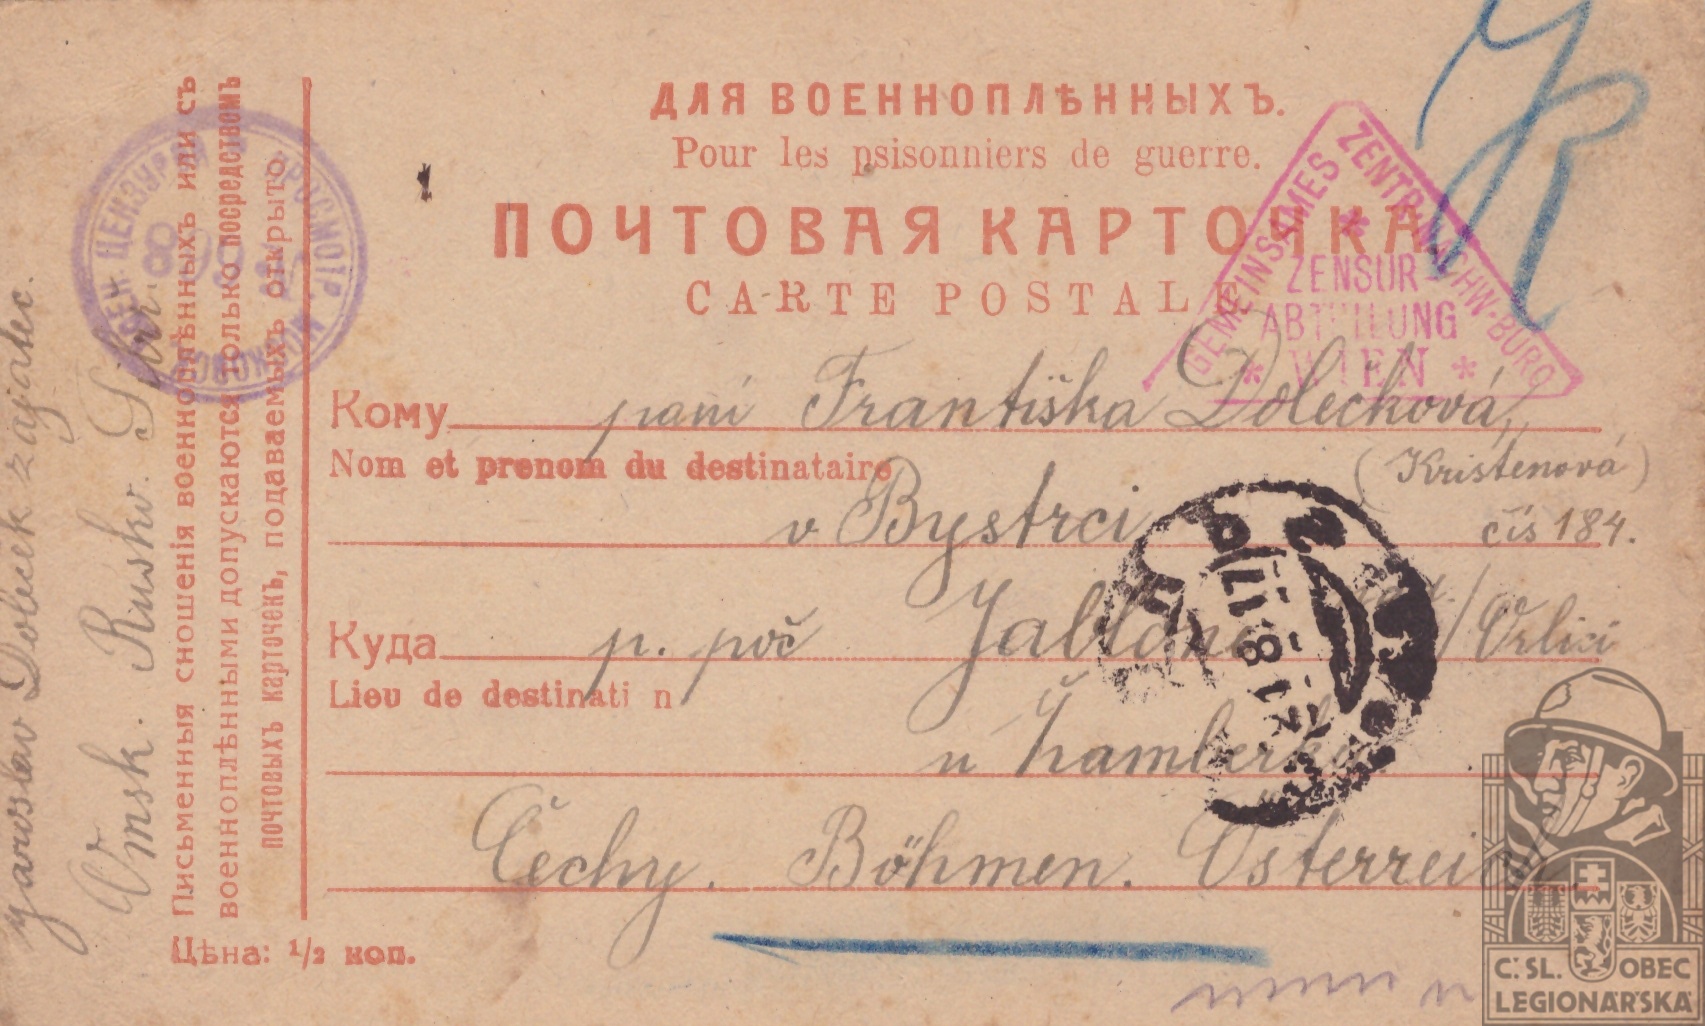 ДЛЯ ВОЕННОПЛѢННЫХЪ.
Pour les psisonniers de guerre.
ПОЧТОВАЯ КАРТОЧКА
CARTE POSTALE
Кому paní Františka Dolečková,
Nom et prenom du destinataire (Kristenová)
v Bystrci čís 184.
Куда p. poč Jablone /Orlicí
Lieu de destinati n
u Žamberka
Čechy. Böhmen. Österreich.
Цѣна: 1/2 коп.
Письменныя сношенія военноплѣнныхъ или съ
военноплѣнными допускаются только посредствомъ
почтовыхъ карточекъ, подаваемыхъ открыто.
Jaroslav Doleček zajatec.
Omsk. Rusko. Sibir.
ВОЕН. ЦЕНЗУРОЙ ПРОСМОТР.
GEMEINSAMES ZENTRALNACHW-BÜRO
ZENSUR
ABTEILUNG
* WIEN *
21.8.17
Č.SL. OBEC
LEGIONÁŘSKÁ